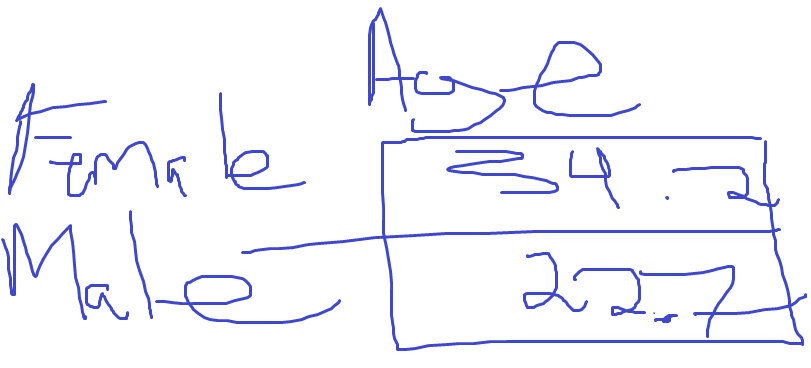 Age
Female 34.2
Male 22.7